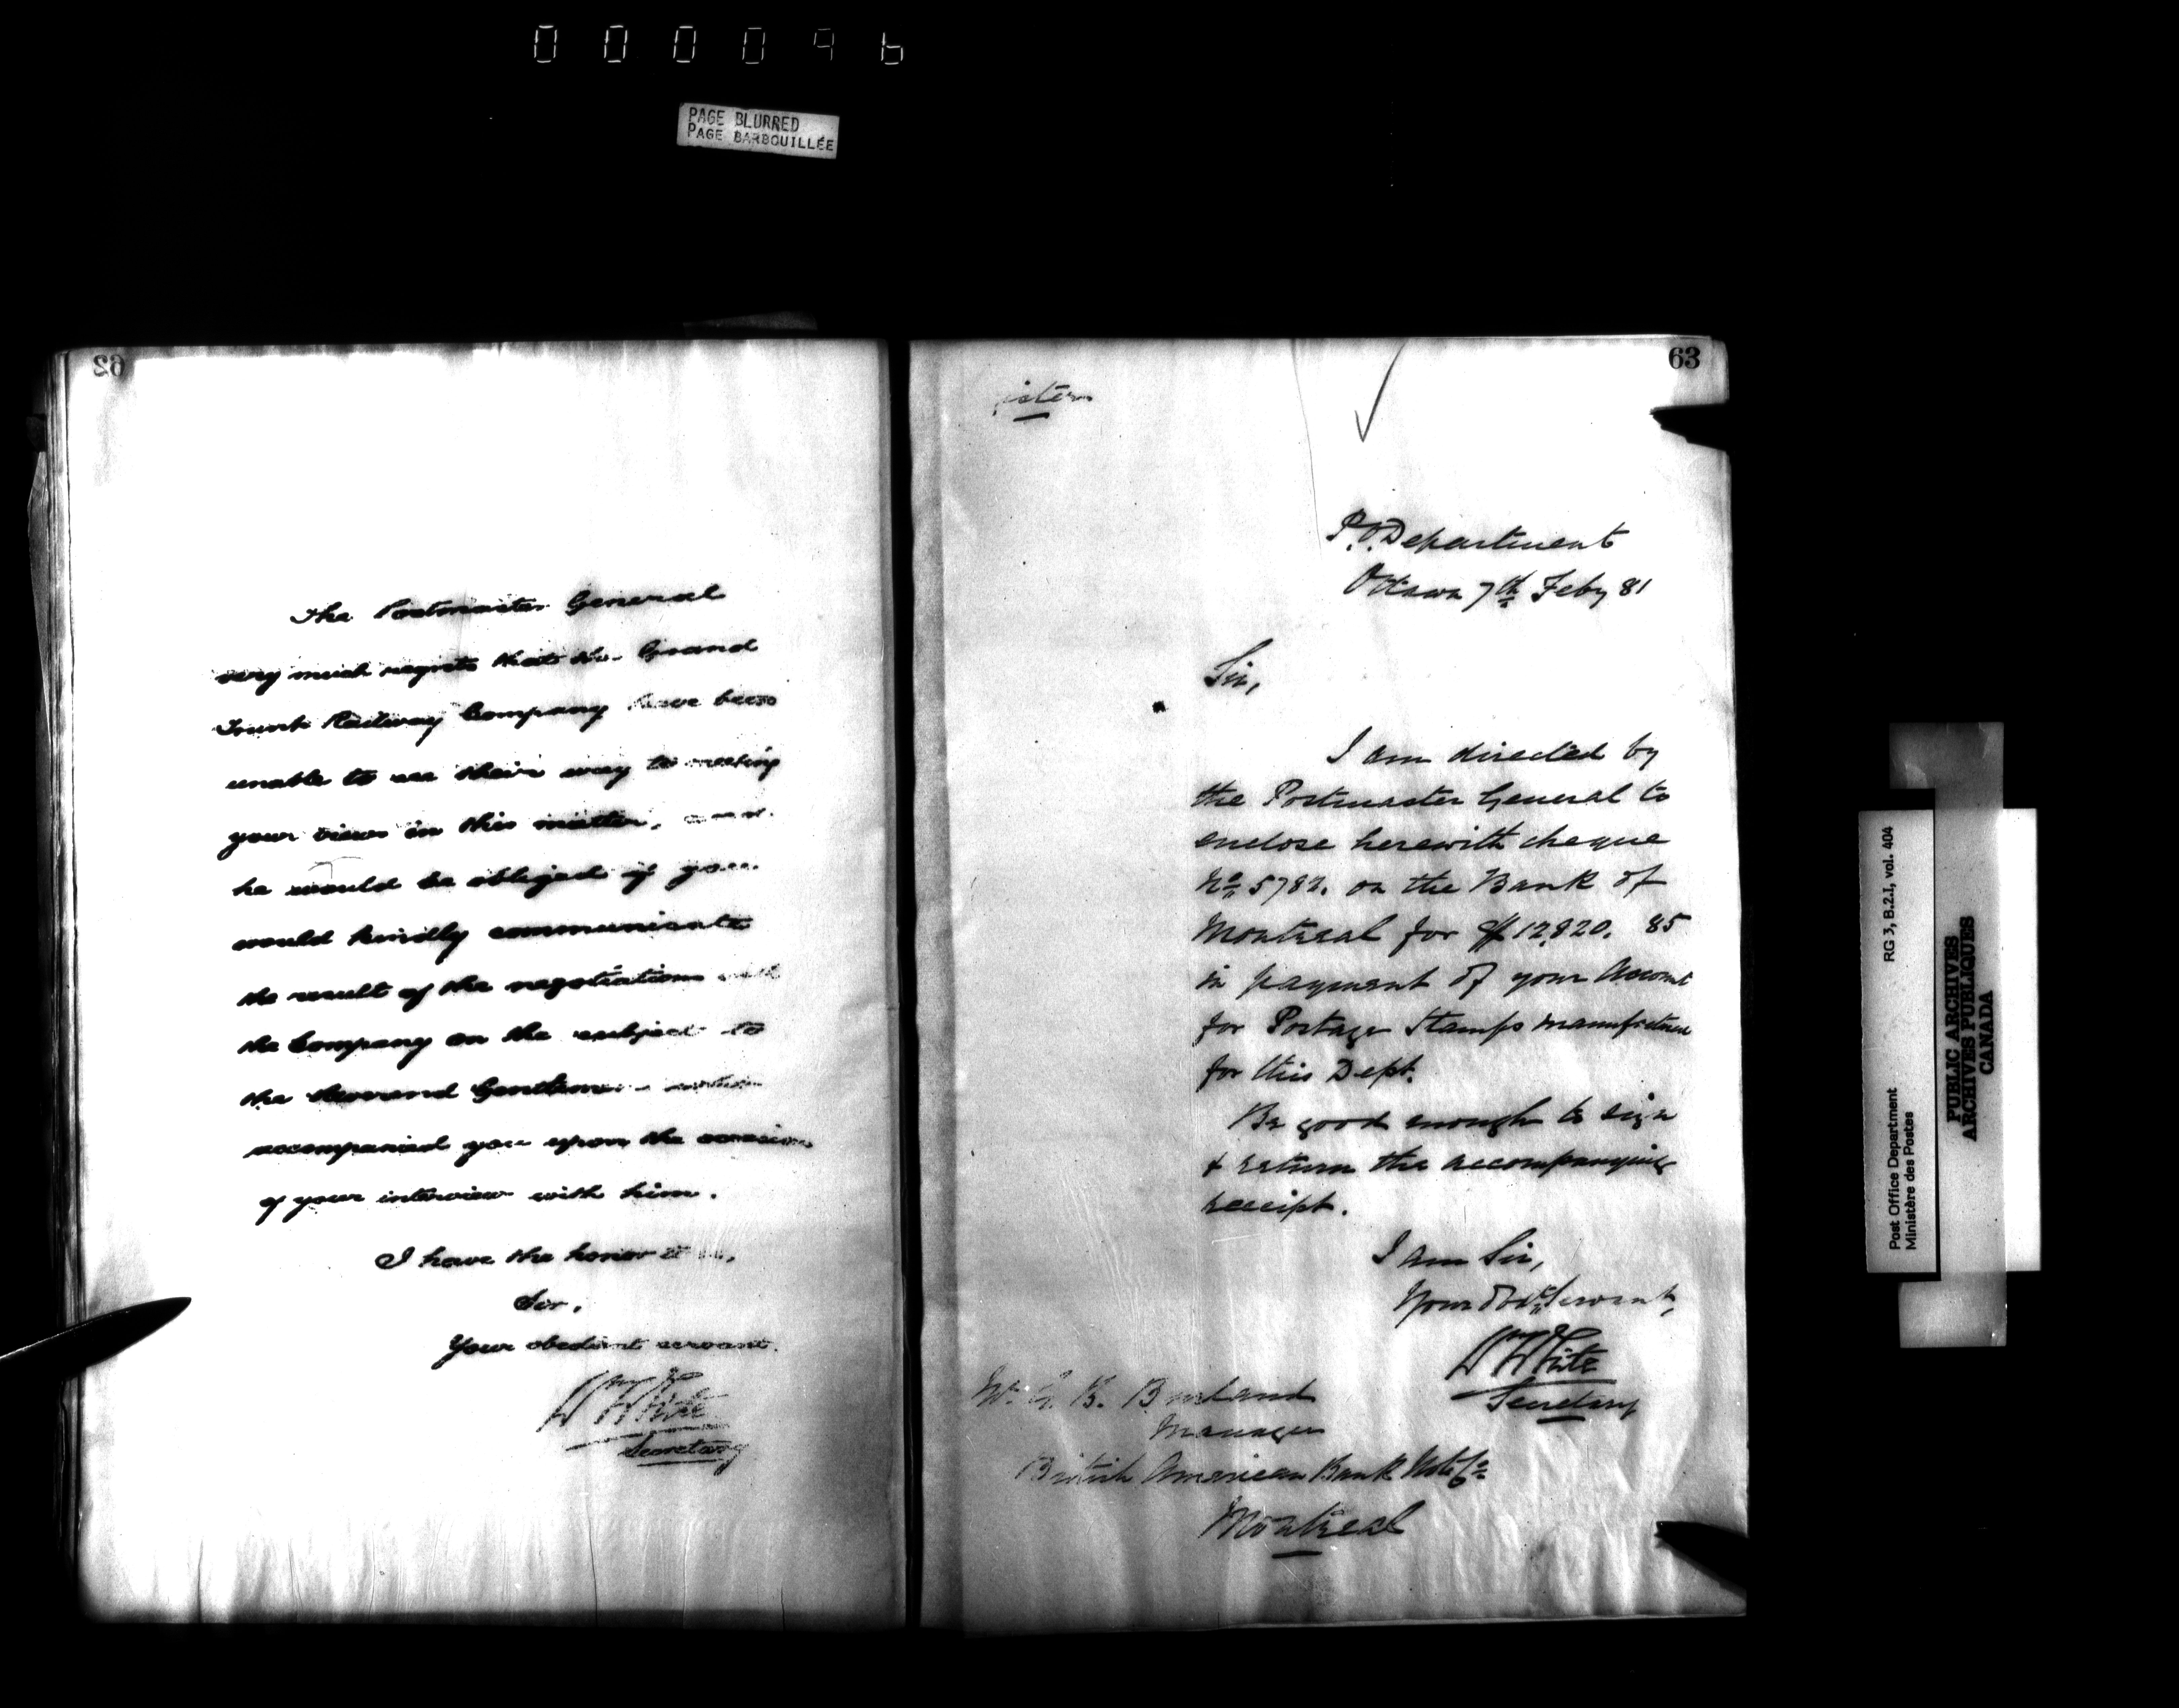 PAGE BLURRED
PAGE BARBOUILLÉE
62
The Postmaster General
very much regrets that the Grand
Trunk Railway Company have been
unable to see their way to meeting
your views in this matter, and
he would be obliged if you
would kindly communicate
the result of the negotiations with
the Company on the subject to
the Reverend Gentleman
accompanied you upon the occasion
of your interview with him.
I have the honor to be,
Sir,
Your obedient servant.
Wm White
Secretary
63
P.O. Department
Ottawa 7th Feby 81
Sir,
I am directed by
the Postmaster General to
enclose herewith cheque
No. on the Bank of
Montreal for $12,820. 85
in payment of your Account
for Postage Stamps manufactured
for this Dept.
Be good enough to sign
& return the accompanying
receipt.
I am Sir,
Your Obt. Servant,
Wm White
Secretary
Burland
Manager
British American Bank Note Co
Montreal
RG 3, B.2.I, vol. 404
Post Office Department
Ministère des Postes
PUBLIC ARCHIVES
ARCHIVES PUBLIQUES
CANADA